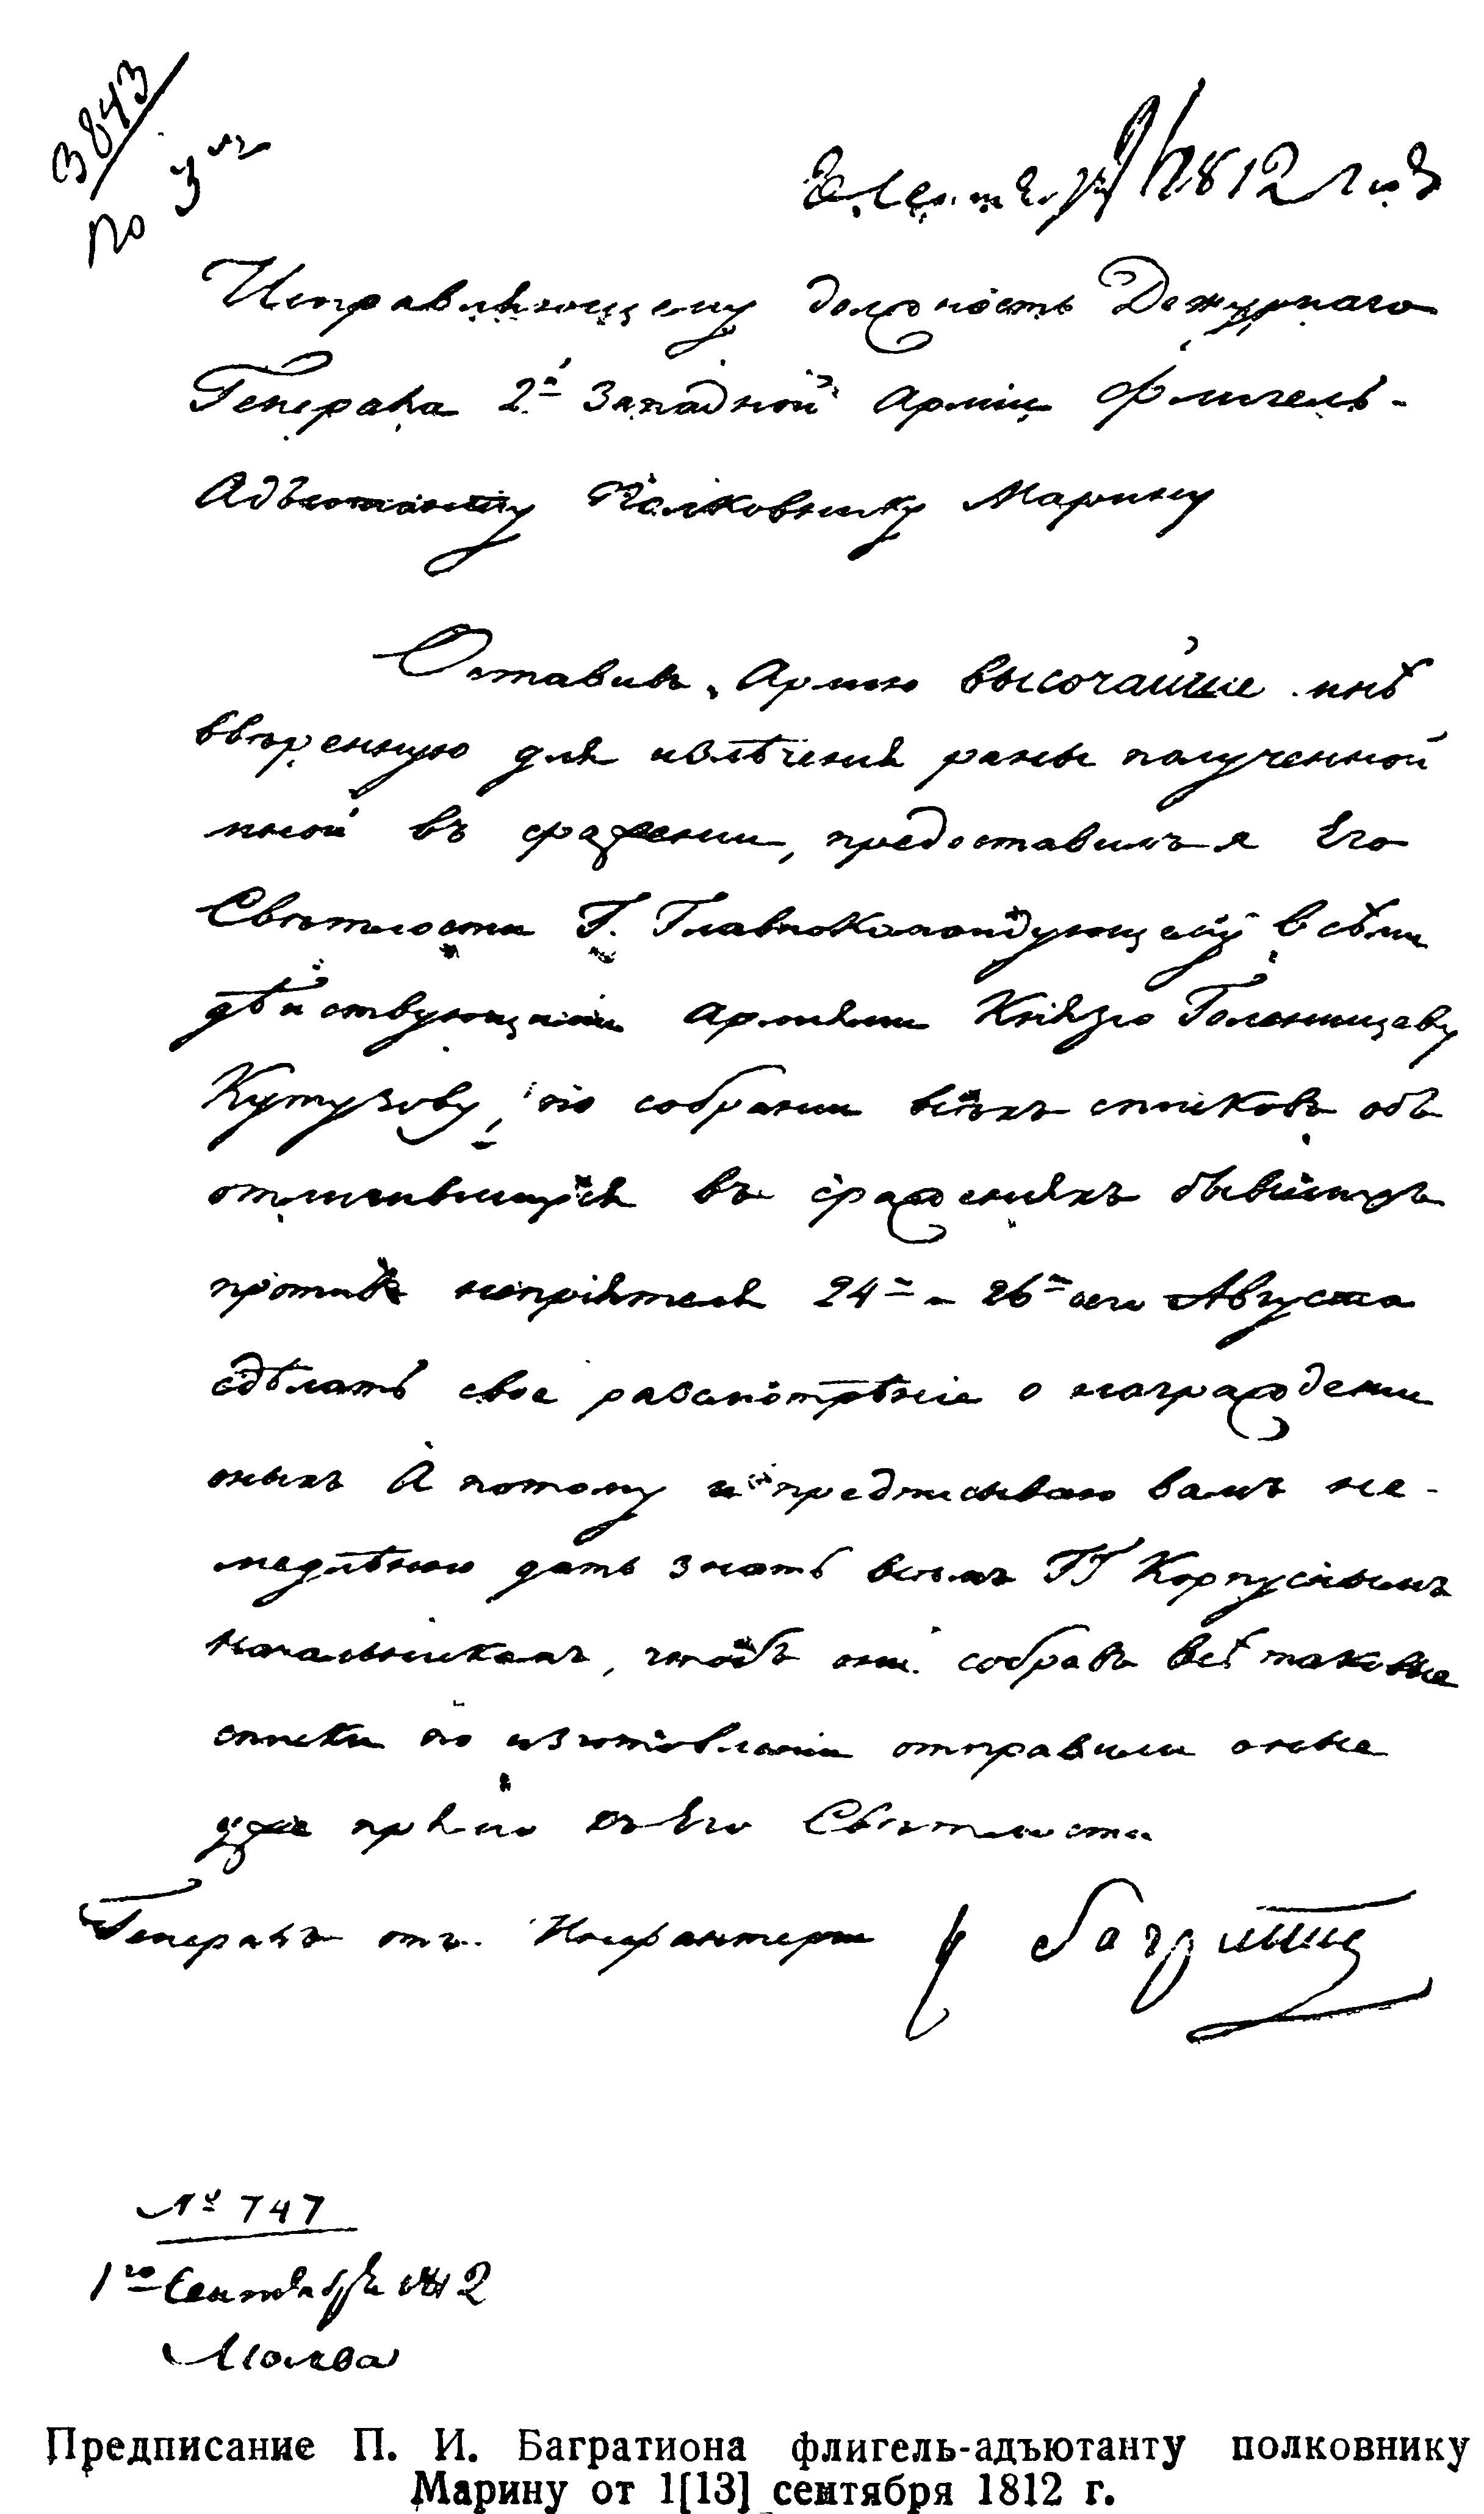 3843
по 3му
сентября 1812 года
Исправляющему должность Дежурнаго
Генерала 2й Западной Арміи Флигель-
Адъютанту Полковнику Марину
Оставивъ Армію высочайше мнѣ
ввѣренную для излѣченія раны полученной
мной въ сраженіи, предоставилъ я Его
Свѣтлости Г. Главнокомандующему всѣми
дѣйствующими арміями Князю Голенищеву
Кутузову, по собраніи всѣхъ списковъ объ
отличившихся въ сраженіяхъ бывшихъ
противъ непріятеля 24го и 26го сего Августа
сдѣлать свое разсмотрѣніе о награжденіи
оныхъ А потому и предписываю вамъ не-
медлѣнно дать знать всѣмъ ГГ Корпуснымъ
начальникамъ, чтобъ они собравъ всѣ таковые
списки по изготовленіи отправили оные
уже прямо къ Его Свѣтлости
Генералъ отъ Инфантеріи К Багратионъ
№ 747
1го Сентября 1812
Москва
Предписание П. И. Багратиона флигель-адъютанту полковнику
Марину от 1[13] сентября 1812 г.